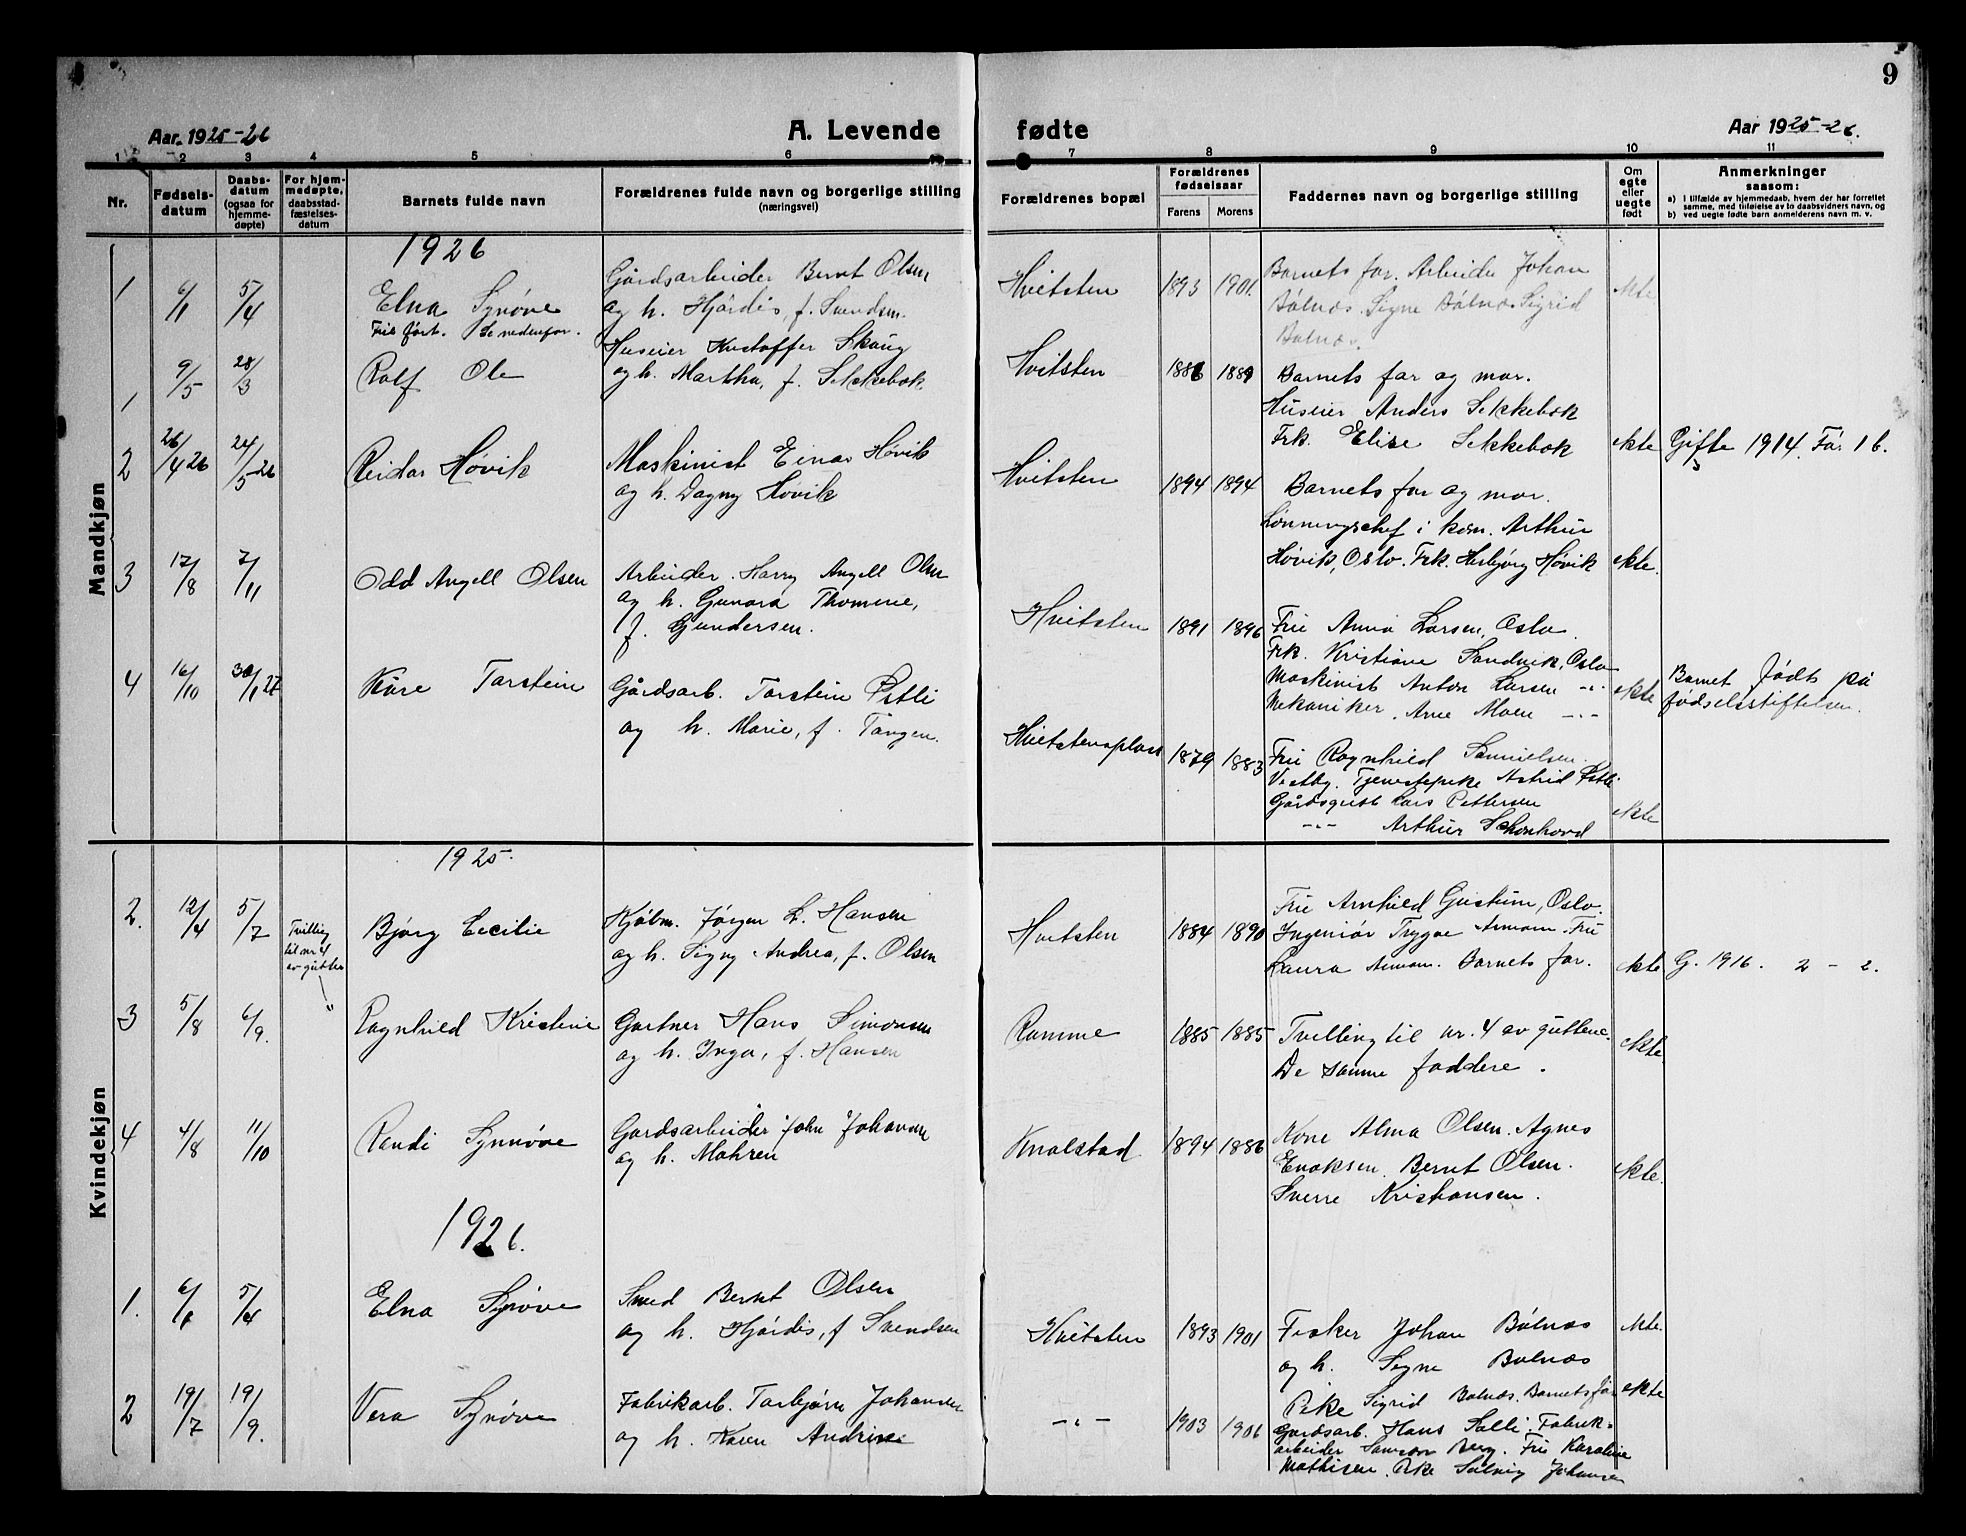 9
Aar. 1925-26
A. Levende
fødte
Aar 1925-26.
1 2 3 4 5 6 7 8 9 10 11
Nr.
Fødsels-
datum
Daabs-
datum
(ogsaa for
hjemme-
døpte)
For hjem-
medøpte,
daabsstad-
fæstelses-
datum
Barnets fulde navn
Forældrenes fulde navn og borgerlige stilling
(næringsvei)
Forældrenes bopæl
Forældrenes
fødselsaar
Farens Morens
Faddernes navn og borgerlige stilling
Om
egte
eller
uegte
født
Anmerkninger
saasom:
a) i tilfælde av hjemmedaab, hvem der har forrettet
samme, med tilføielse av to daabsvidners navn, og
b) ved uegte fødte barn anmelderens navn m. v.
Mandkjøn
1926
1 6/1 5/4
Elna Synøve
Feil ført. Se nedenfor.
Gårdsarbeider Bernt Olsen
og h. Hjørdis, f. Svendsen.
Hvitsten 1893 1901.
Barnets far. Arbeider Johan
Bølnæs. Signe Bølnæs. Sigrid
Bølnæs.
ekte
1 9/5 28/3
Rolf Ole
Huseier Kristoffer Skaug
og h. Martha, f. Sekkebok
Hvitsten 1889
Barnets far og mor.
Huseier Anders Sekkebok
Frk. Elise Sekkebok
ekte Gifte 1914. Før 1 b.
2 26/4 26 24/5 26
Reidar Høvik
Maskinist Einar Høvik
og h. Dagny Høvik
Hvitsten 1894 1894
Barnets far og mor.
Lønningschef i kom. Arthur
Høvik, Oslo. Frk. Herbjørg Høvik
ekte.
3 17/8 7/11
Odd Angell Olsen
Arbeider. Harry Angell Olsen
og h. Gunara Thomine,
f. Gundersen.
Hvitsten 1891 1896
Frue Anna Larsen, Oslo.
Frk. Kristiane Sandvik, Oslo
Maskinist Anton Larsen -"-
Mekaniker. Arne Moen -"-
ekte
Barnet født på
fødselsstiftelsen.
4 16/10 30/1 27
Kåre Torstein
Gårdsarb. Torstein Petli
og h. Marie, f. Tangen.
Hvitstensplass 1879 1883
Frue Ragnhild Samuelsen.
Vestby. Tjenestepike Astrid Petli
Gårdsgutt Lars Pettersen
-"- Arthur
ekte
Kvindekjøn
1925.
2. 12/4 5/7
Tvilling
til nr 4
av gutter
"
Bjørg Cecilie
Kjøbm. Jørgen L. Hansen
og h. Signy Andrea, f. Olsen
Hvitsten 1884 1890
Frue Arnhild Oslo.
Ingeniør Trygve Frue
Laura Barnets far.
ekte G. 1916. 2 - 2.
3 5/8 6/9.
Ragnhild Kristine
Gartner Hans Simonsen
og h. Inga, f. Hansen
Ramme 1885 1885
Tvilling til nr. 4 av guttene.
De samme faddere.
ekte
4 4/8 11/10
Randi Synnøve
Gardsarbeider John Johansen
og h. Mahren
Knalstad 1894 1886
Kone Alma Olsen. Agnes
Enoksen. Bernt Olsen.
Sverre Kristiansen.
ekte.
1926.
1. 6/1 5/4
Elna Synøve
Smed Bernt Olsen
og h. Hjørdis, f Svendsen
Hvitsten 1893 1901
Fisker Johan Bølnæs
og h. Signe Bølnæs
Pike Sigrid Bølnæs. Barnets far
ekte.
2 19/7 19/9.
Vera Synøve
Fabrikarb. Torbjørn Johansen
og h. Karen Andrine
-"- 1903 1906
Gardsarb. Hans Solli. Fabrik-
arbeider Samson Berg. Frue Karoline
Mathisen. Pike Solveig Johansen
ekte